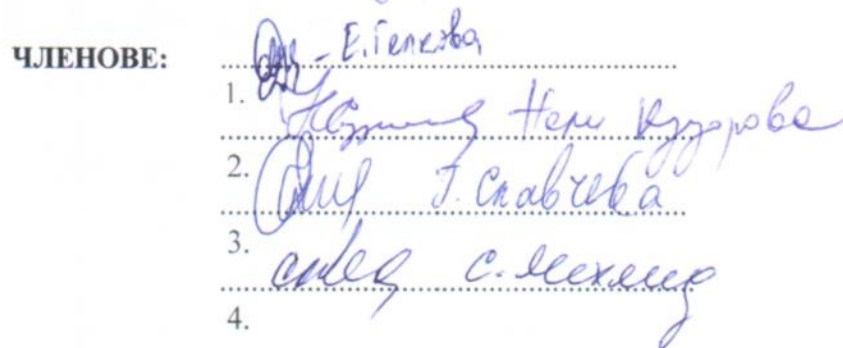 ЧЛЕНОВЕ: ........................................ - Е. Гелкова
1. ........................................ Нели Кузорова
2. ........................................ Г. Славчева
3. ........................................ С. Мехмед
4.